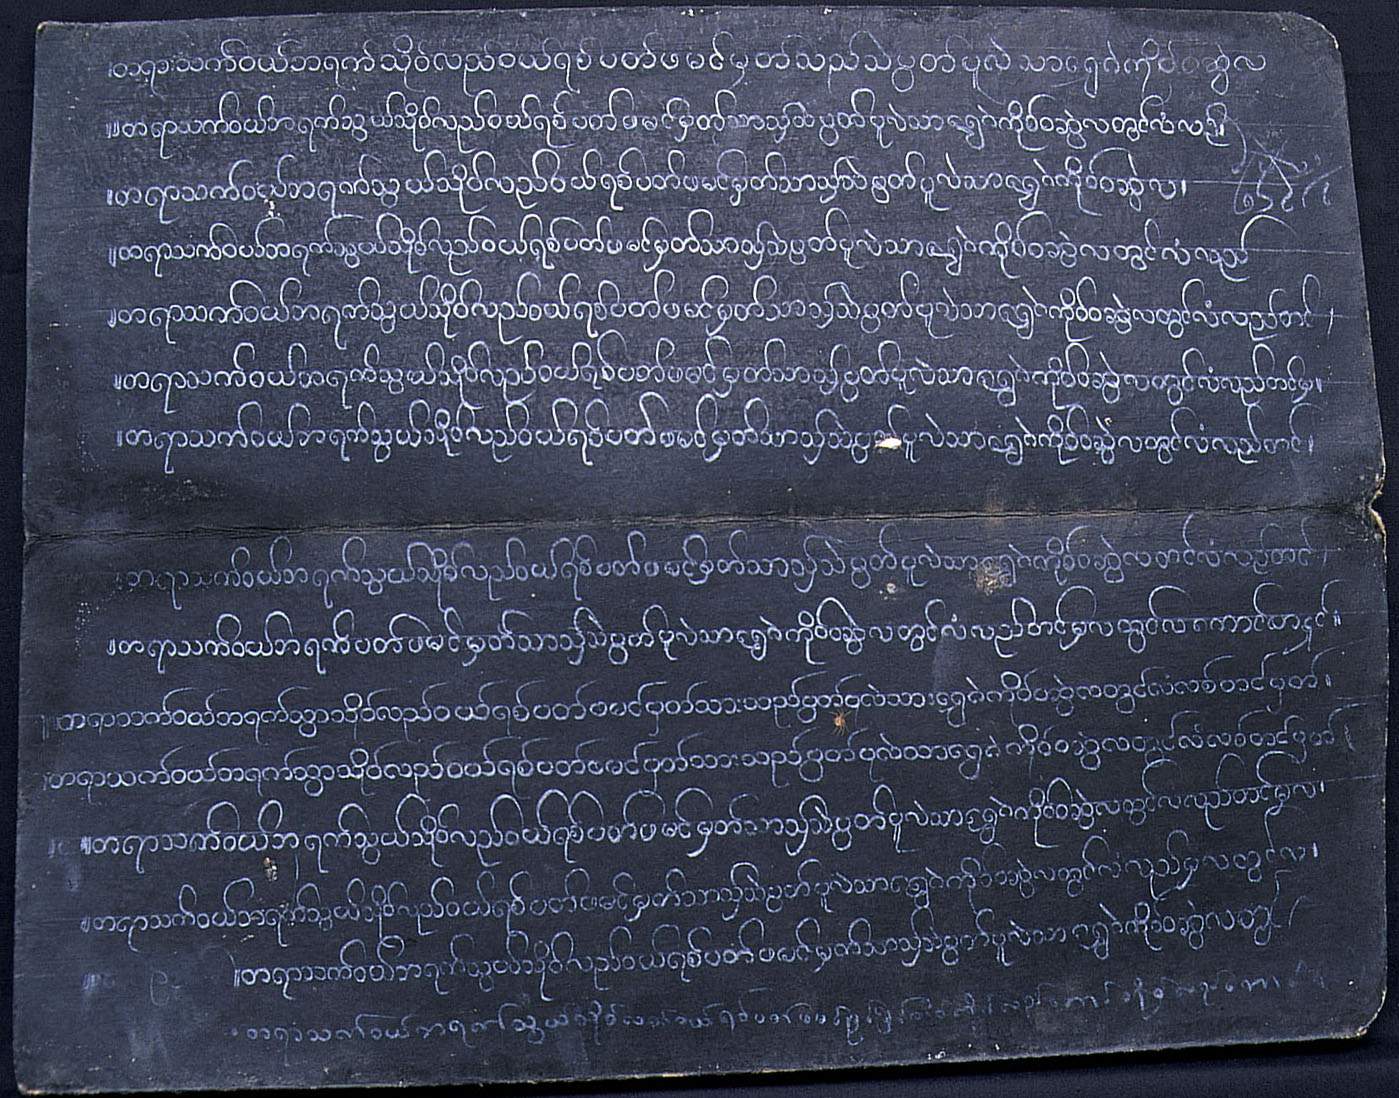 ။တရားသက်ဝယ်ဘရက်သိုဝ်လည်ဝယ်ရစ်ပတ်ဖမင်မှတ်သည်သဲပွတ်ပုလဲသာရွှေဂဲကိုဝ်ဝဆွဲလ
။တရာသက်ဝယ်ဘရက်သွယ်သိုဝ်လည်ဝယ်ရစ်ပတ်ဖမင်မှတ်သာသှ်သဲပွတ်ပုလဲသာရွှေဂဲကိုဝ်ဝဆွဲလတွင်လံလည်
။တရာသက်ဝယ်ဘရက်သွယ်သိုဝ်လည်ဝယ်ရစ်ပတ်ဖမင်မှတ်သာသှ်သဲပွတ်ပုလဲသာရွှေဂဲကိုဝ်ဝဆွဲလ၊
။တရာသက်ဝယ်ဘရက်သွယ်သိုဝ်လည်ဝယ်ရစ်ပတ်ဖမင်မှတ်သာသှ်သဲပွတ်ပုလဲသာရွှေဂဲကိုဝ်ဝဆွဲလတွင်လံလည်
။တရာသက်ဝယ်ဘရက်သွယ်သိုဝ်လည်ဝယ်ရစ်ပတ်ဖမင်မှတ်သာသှ်သဲပွတ်ပုလဲသာရွှေဂဲကိုဝ်ဝဆွဲလတွင်လံလည်တင်၊
။တရာသက်ဝယ်ဘရက်သွယ်သိုဝ်လည်ဝယ်ရစ်ပတ်ဖမင်မှတ်သာသှ်ပွတ်ပုလဲသာရွှေဂဲကိုဝ်ဝဆွဲလတွင်လံလည်တင်မှ။
။တရာသက်ဝယ်ဘရက်သွယ်သိုဝ်လည်ဝယ်ရစ်ပတ်ဖမင်မှတ်သာသှ်သဲပွတ်ပုလဲသာရွှေဂဲကိုဝ်ဝဆွဲလတွင်လံလည်တင်၊
တရာသက်ဝယ်ဘရက်သွယ်သိုဝ်လည်ဝယ်ရစ်ပတ်ဖမင်မှတ်သာသှ်သဲပွတ်ပုလဲသာရွှေဂဲကိုဝ်ဝဆွဲလတင်လံလည်တင်၊
။တရာသက်ဝယ်ဘရက်ပတ်ဖမင်မှတ်သာသှ်သဲပွတ်ပုလဲသာရွှေဂဲကိုဝ်ဝဆွဲလတွင်လံလည်တင်မှလတွင်လကောင်
။တရာသက်ဝယ်ဘရက်သွာသိုဝ်လည်ဝယ်ရစ်ပတ်ဖမင်မှတ်သားသည်ပွတ်ပုလဲသားရွှေဂဲကိုဝ်ဝဆွဲလတွင်လံလစ်တင်မှတ်၊
။တရာသက်ဝယ်ဘရက်သွာသိုဝ်လည်ဝယ်ရစ်ပတ်ဖမင်မှတ်သားသည်ပွတ်ပုလဲသာရွှေဂဲကိုဝ်ဝဆွဲလတွင်လံလစ်တင်မှတ်
။တရာသက်ဝယ်ဘရက်သွယ်သိုဝ်လည်ဝယ်ရစ်ပတ်ဖမင်မှတ်သာသှ်သဲပွတ်ပုလဲသာရွှေဂဲကိုဝ်ဝဆွဲလတွင်လလည်တင်မှလ၊
။တရာသက်ဝယ်ဘရက်သွယ်သိုဝ်လည်ဝယ်ရစ်ပတ်ဖမင်မှတ်သာသှ်သဲပွတ်ပုလဲသာရွှေဂဲကိုဝ်ဝဆွဲလတွင်လံလည်မှလတွင်လ၊
။တရာသက်ဝယ်ဘရက်သွယ်သိုဝ်လည်ဝယ်ရစ်ပတ်ဖမင်မှတ်သာသှ်သဲပွတ်ပုလဲသာရွှေဂဲကိုဝ်ဝဆွဲလတွ
တရာသက်ဝယ်ဘရက်သွယ်သိုဝ်